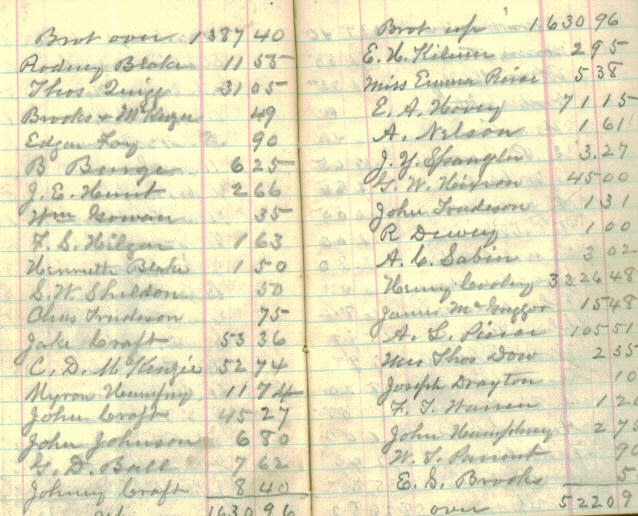 Brot over 1387 40
Rodney Blake 11 55
Thos Quigg 31 05
Brooks & McKenzie 49
Edgar Foy 90
B Barge 6 25
J. E. Hunt 2 66
Wm 35
F. S. Hilgar 1 63
Henrietta Blake 1 50
S. W. Sheldon 50
Chas Frudeson 75
Jake Craft 53 36
C. D. McKenzie 52 74
Myron Humfrey 11 74
John Craft 45 27
John Johnson 6 80
G. D. Ball 7 62
Johnny Craft 8 40
1630 96
Brot up 1630 96
E. H. 2 95
Miss Emma 5 38
E. A. Hovey 71 15
A. Nelson 1 61
J. Y. Spangler 3.27
G. W. Hixson 45 00
John Frudeson 1 31
R Dewey 1 00
A. C. Sabin 3 02
Henry 3326 48
James McGreggor 15 48
A. L. Pierce 105 51
Mrs Thos Dow 2 35
Joseph Drayton 10
F. T. Warren 1 20
John Humphrey 2 75
W. S. Parrout 90
E. S. Brooks 5
over 5220 9